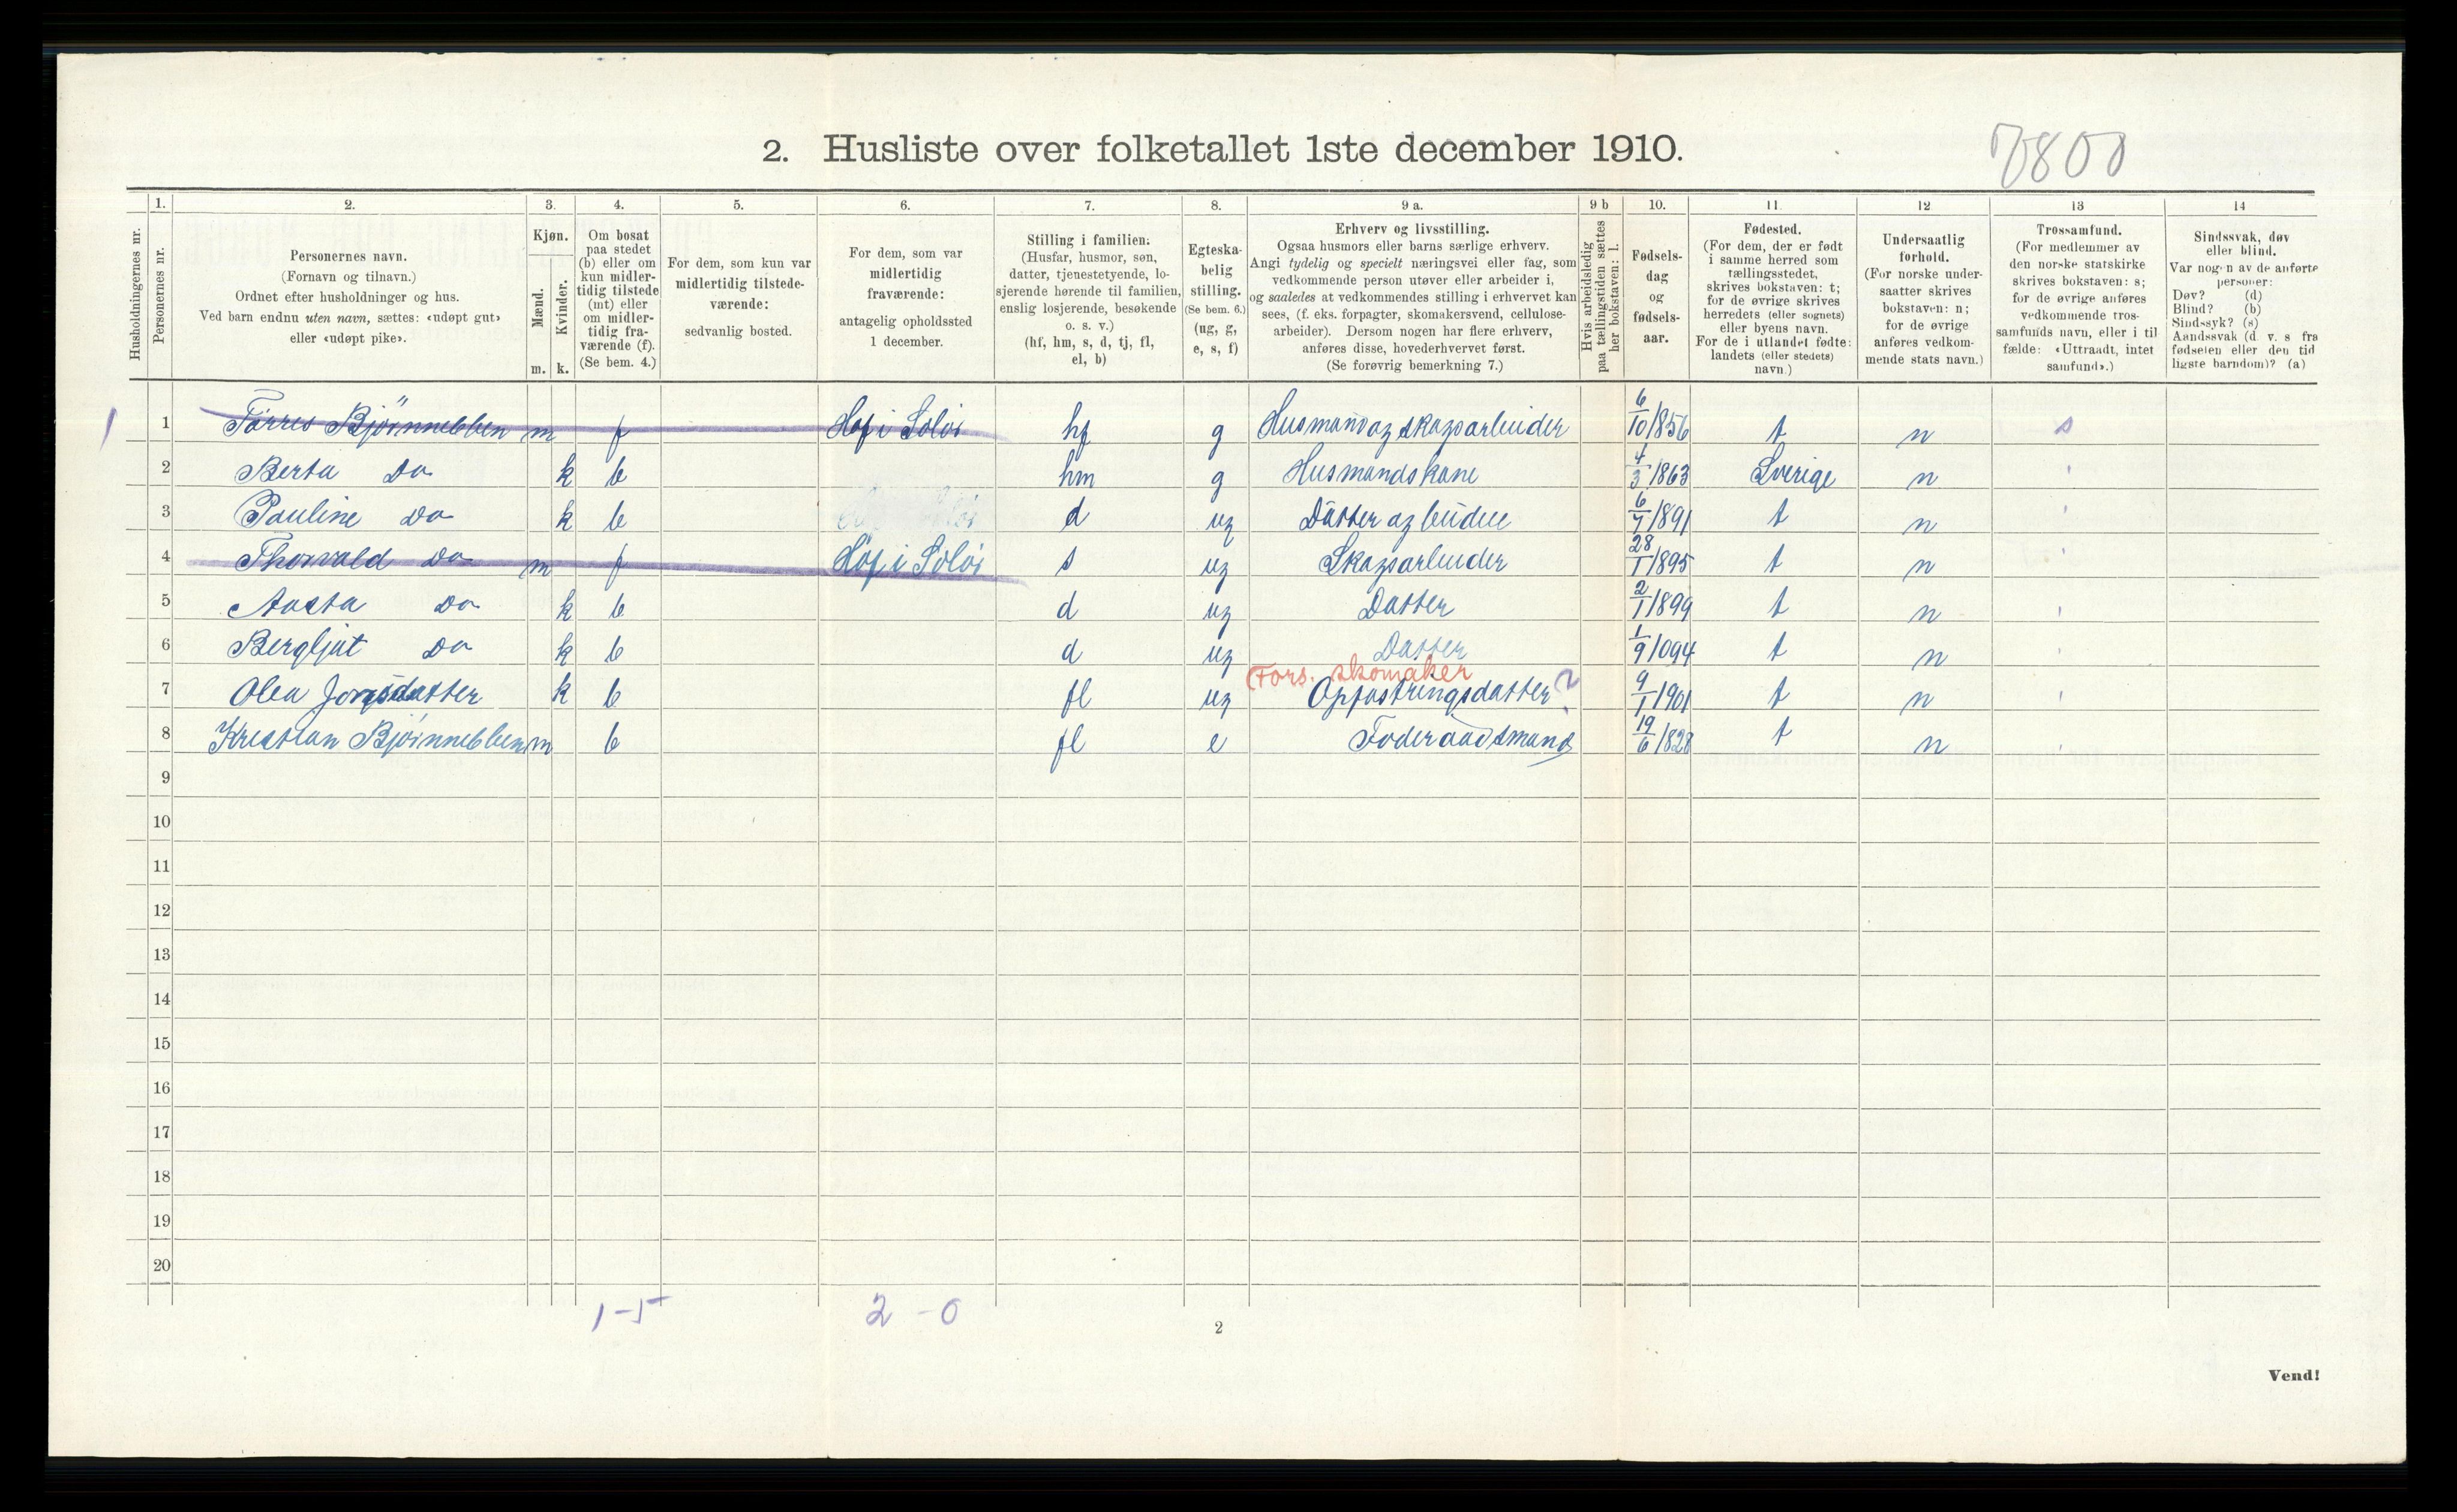 2. Husliste over folketallet 1ste december 1910.
Husholdningernes nr.
1. Personernes nr.
2. Personernes navn.
(Fornavn og tilnavn.)
Ordnet efter husholdninger og hus.
Ved barn endnu uten navn, sættes: «udøpt gut»
eller «udøpt pike».
3. Kjøn.
Mænd. m.
Kvinder. k.
4. Om bosat
paa stedet
(b) eller om
kun midler-
tidig tilstede
(mt) eller
om midler-
tidig fra-
værende (f).
(Se bem. 4.)
5. For dem, som kun var
midlertidig tilstede-
værende:
sedvanlig bosted.
6. For dem, som var
midlertidig
fraværende:
antagelig opholdssted
1 december.
7. Stilling i familien:
(Husfar, husmor, søn,
datter, tjenestetyende, lo-
sjerende hørende til familien,
enslig losjerende, besøkende
o. s. v.)
(hf, hm, s, d, tj, fl,
el, b)
8. Egteska-
belig
stilling.
(Se bem. 6.)
(ug, g,
e, s, f)
9 a. Erhverv og livsstilling.
Ogsaa husmors eller barns særlige erhverv.
Angi tydelig og specielt næringsvei eller fag, som
vedkommende person utøver eller arbeider i,
og saaledes at vedkommendes stilling i erhvervet kan
sees, (f. eks. forpagter, skomakersvend, cellulose-
arbeider). Dersom nogen har flere erhverv,
anføres disse, hovederhvervet først.
(Se forøvrig bemerkning 7.)
9 b Hvis arbeidsledig
paa tællingstiden sættes
her bokstaven: l.
10. Fødsels-
dag
og
fødsels-
aar.
11. Fødested.
(For dem, der er født
i samme herred som
tællingsstedet,
skrives bokstaven: t;
for de øvrige skrives
herredets (eller sognets)
eller byens navn.
For de i utlandet fødte:
landets (eller stedets)
navn.)
12 Undersaatlig
forhold.
(For norske under-
saatter skrives
bokstaven: n;
for de øvrige
anføres vedkom-
mende stats navn.)
13 Trossamfund.
(For medlemmer av
den norske statskirke
skrives bokstaven: s;
for de øvrige anføres
vedkommende tros-
samfunds navn, eller i til
fælde: «Uttraadt, intet
samfund».)
14 Sindssvak, døv
eller blind.
Var nogen av de anførte
personer:
Døv? (d)
Blind? (b)
Sindssyk? (s)
Aandssvak (d. v. s fra
fødselen eller den tid
ligste barndom)? (a)
1 1 Tørres Bjørnnebben m f Hof i Solør hf g Husmand og skogsarbeider 6/10/856 t n s
2 Berta Do k b hm g Husmandskone 4/3/1863 Sverige n
3 Pauline Do k b d ug Datter og budeie 6/7/891 t n
4 Thorvald Do m f Hof i Solør s ug Skogsarbeider 28/1/895 t n
5 Aasta Do k b d ug Datter 2/1/1899 t n
6 Bergljot Do k b d ug Datter 1/9/094 t n
Fors. skomaker
7 Olea Jonsdatter k b fl ug Oppfostringsdatter ? 9/1/1901 t n
8 Krestian Bjørnnebben m b fl e Føderaadsmand 19/6/828 t n
9
10
11
12
13
14
15
16
17
18
19
20
1-5 2-0
2
Vend!